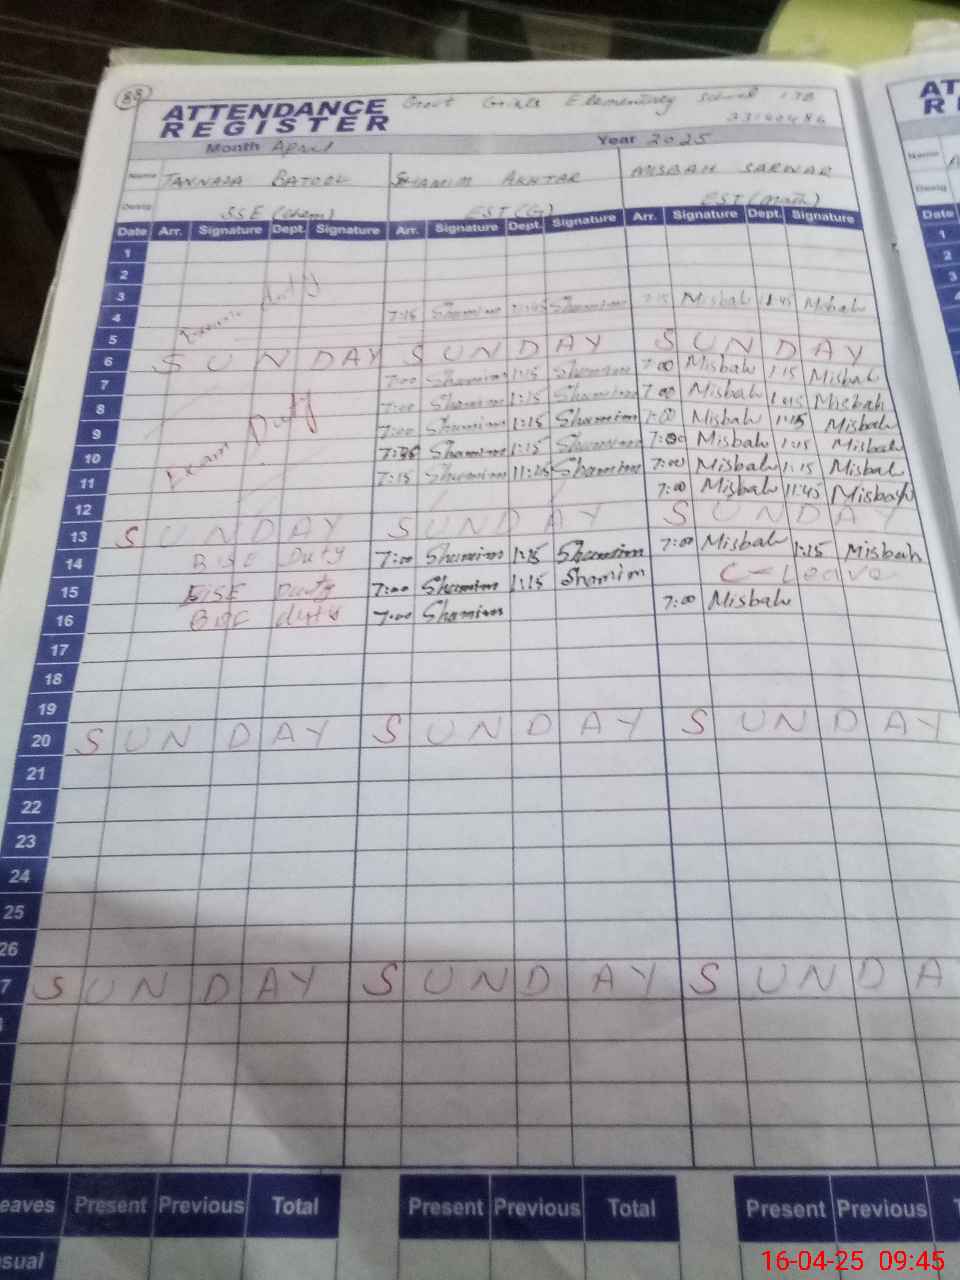 88
ATTENDANCE Govt Girls Elementary School
REGISTER
Month April Year 2025
Name BATOOL SHAMIM AKHTAR MISBAH SARWAR
Desig SSE (Chem) EST (G) EST (Math)
Date Arr. Signature Dept. Signature Arr. Signature Dept. Signature Arr. Signature Dept. Signature
1
2
3 Duty
4 7:15 Shamim Shamim 7:15 Misbah 11:45 Misbah
5
6 SUNDAY SUNDAY SUNDAY
7 7:00 Shamim 1:15 Shamim 7:00 Misbah 1:15 Misbah
8 7:00 Shamim 1:15 Shamim 7:00 Misbah 1:15 Misbah
9 Exam Duty 7:00 Shamim 1:15 Shamim 7:00 Misbah 1:15 Misbah
10 Shamim 1:15 Shamim 7:00 Misbah 1:15 Misbah
11 7:15 Shamim 11:45 Shamim 7:00 Misbah 1:15 Misbah
12 7:00 Misbah 11:45 Misbah
13 SUNDAY SUNDAY SUNDAY
14 BISE Duty 7:00 Shamim 1:15 Shamim 7:00 Misbah 1:15 Misbah
15 BISE Duty 7:00 Shamim 1:15 Shamim C-Leave
16 duty 7:00 Shamim 7:00 Misbah
17
18
19
20 SUNDAY SUNDAY SUNDAY
21
22
23
24
25
26
7 SUNDAY SUNDAY SUNDA
eaves Present Previous Total Present Previous Total Present Previous T
sual
AT
R
Name
Desig
Date
1
2
3
16-04-25 09:45